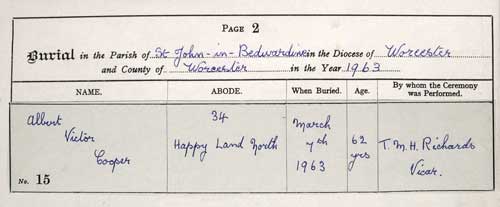 PAGE 2
Burial in the Parish of St John-in-Bedwardine in the Diocese of Worcester
and County of Worcester in the Year 1963
NAME. ABODE. When Buried. Age. By whom the Ceremony was Performed.
Albert Victor Cooper
34 Happy Land North
March 7th 1963
62 yrs
T. M. H. Richards
Vicar.
No. 15